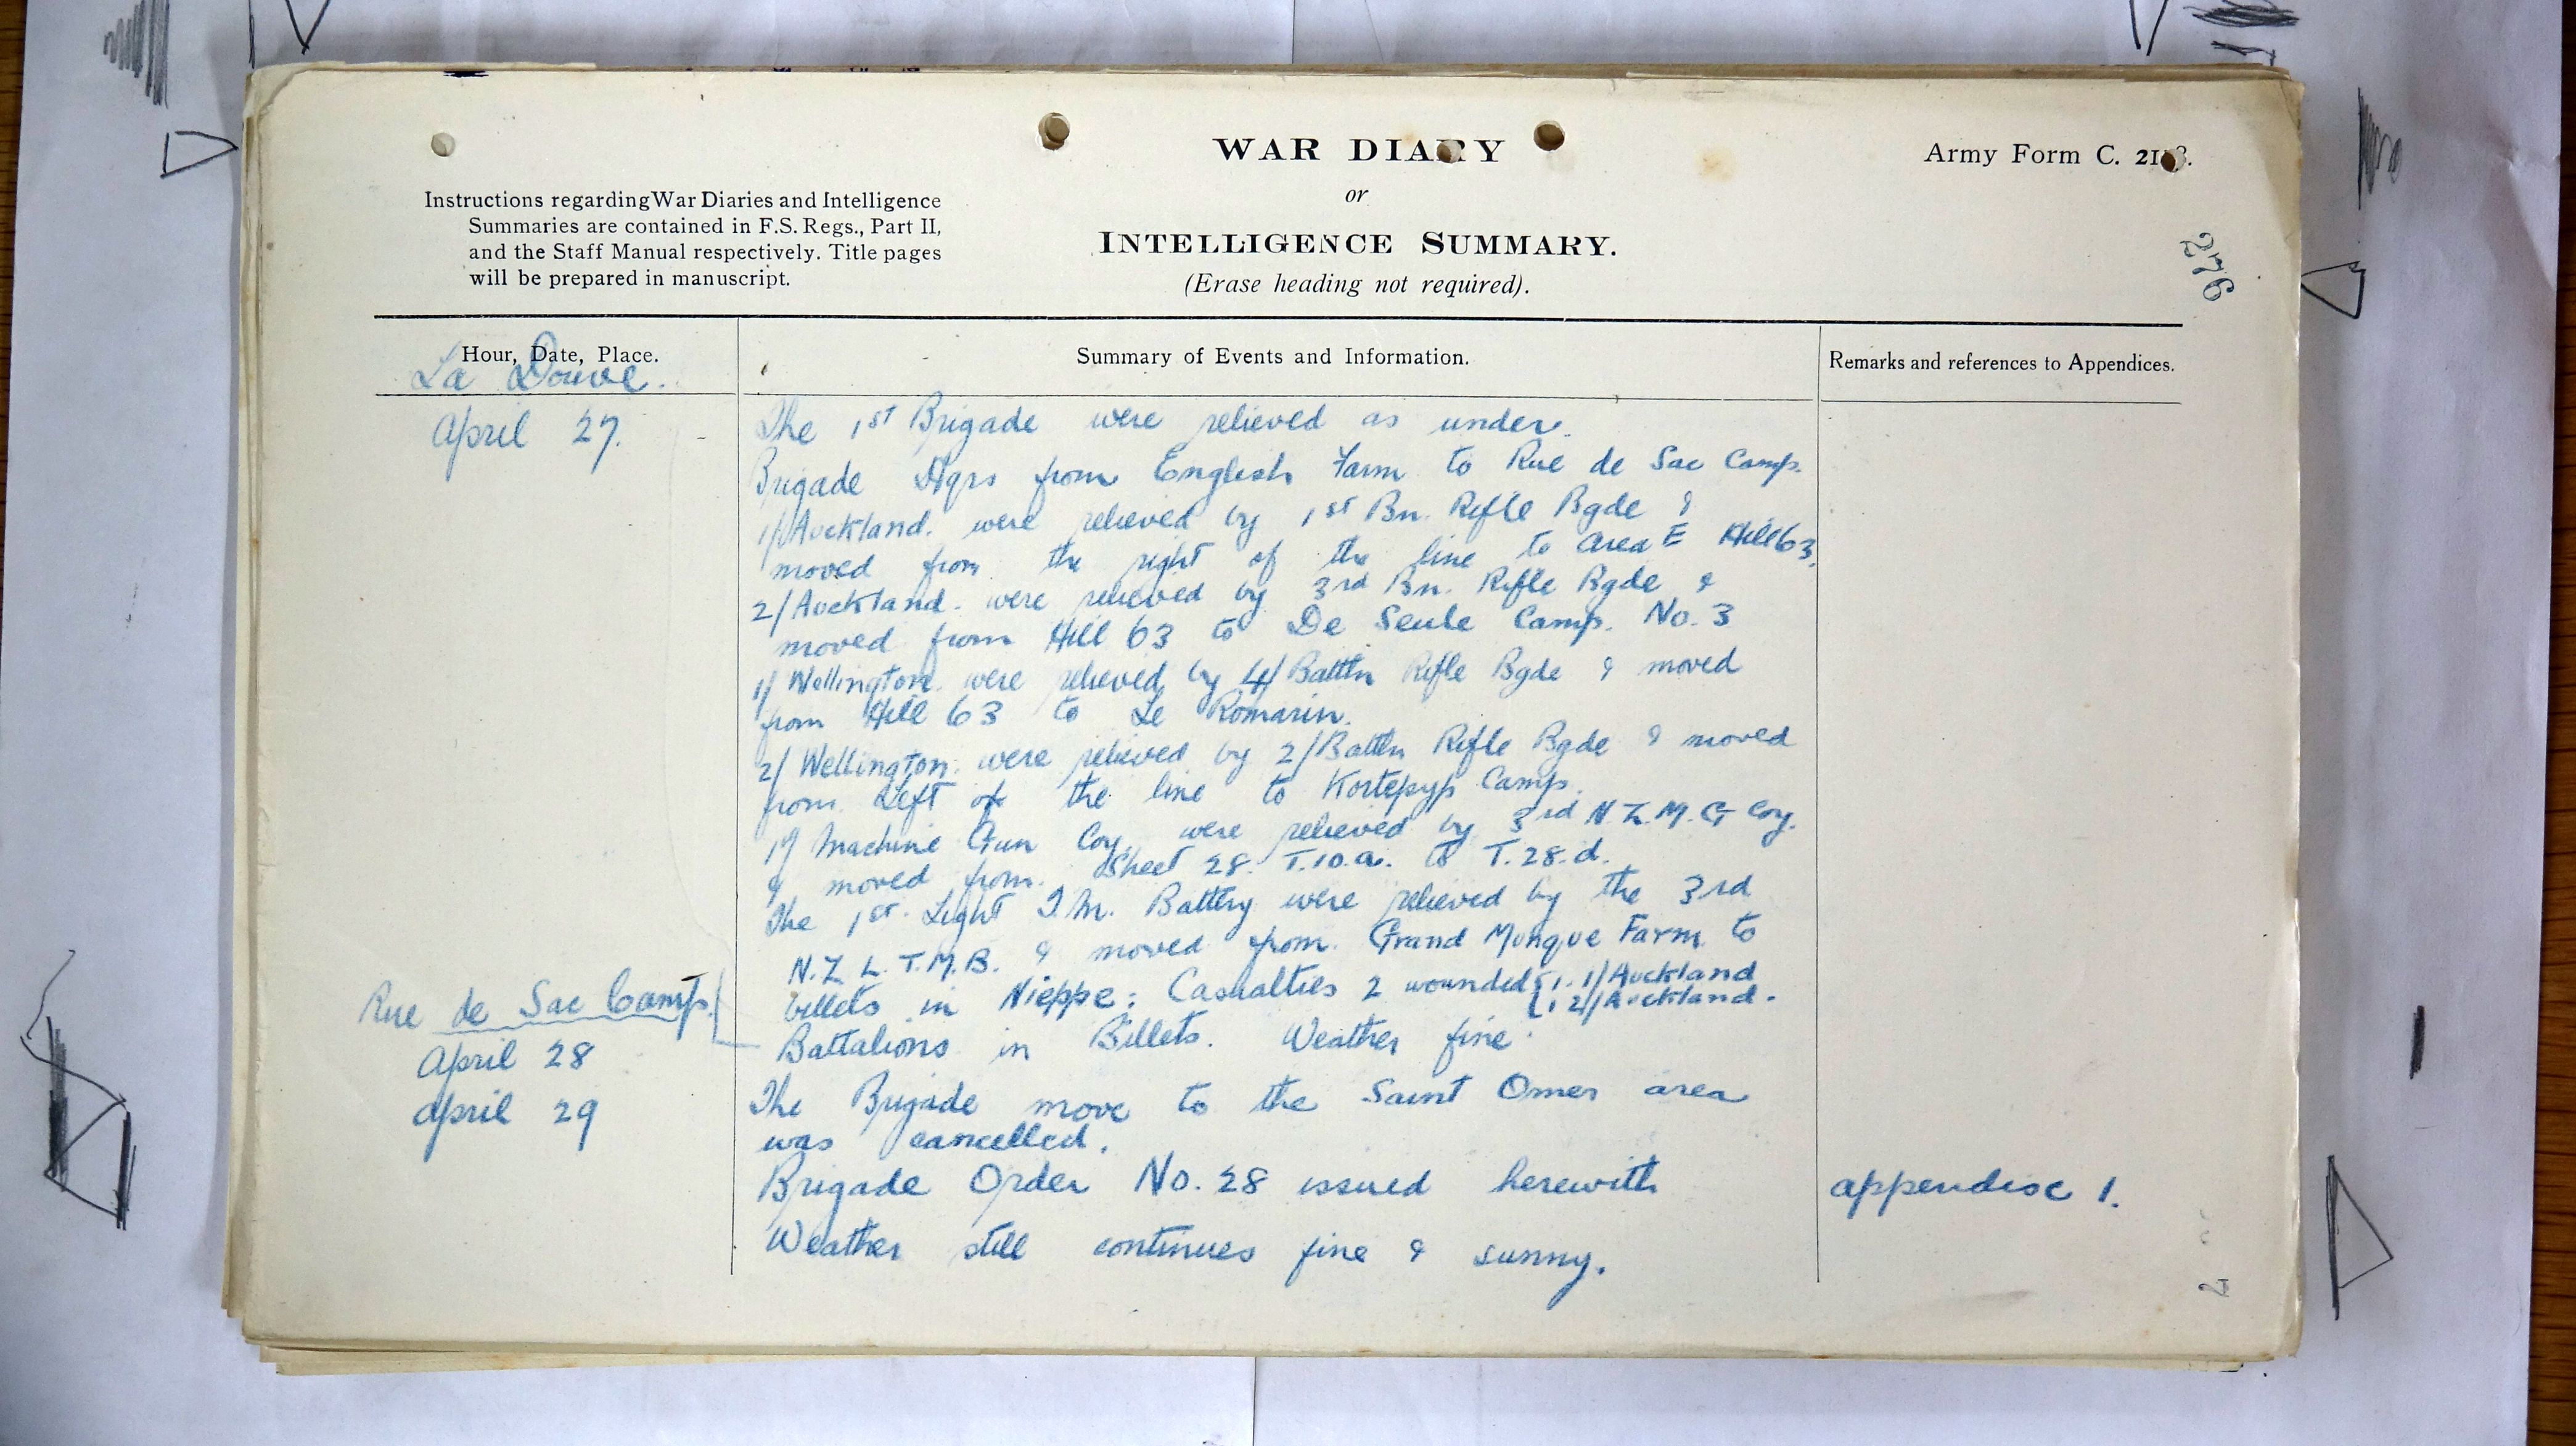 WAR DIARY
Army Form C. 2118.
or
Instructions regarding War Diaries and Intelligence
Summaries are contained in F.S. Regs., Part II,
and the Staff Manual respectively. Title pages
will be prepared in manuscript.
INTELLIGENCE SUMMARY.
(Erase heading not required).
276
Hour, Date, Place.
Summary of Events and Information.
Remarks and references to Appendices.
La Douve.
April 27.
The 1st Brigade were relieved as under.
Brigade Hqrs from English Farm to Rue de Sac Camp.
1/Auckland. were relieved by 1st Bn. Rifle Bgde &
moved from the right of the line to area E Hill 63.
2/Auckland. were relieved by 3rd Bn. Rifle Bgde &
moved from Hill 63 to De Seule Camp. No. 3
1/ Wellington. were relieved by 4/ Battln Rifle Bgde & moved
from Hill 63 to Le Romarin.
2/ Wellington. were relieved by 2/Battln Rifle Bgde & moved
from Left of the line to Kortepyp Camp.
1/ Machine Gun Coy. were relieved by 3rd N.Z.M.G Coy.
& moved from. Sheet 28. T.10.a. to T.28.d.
The 1st. Light T.M. Battery were relieved by the 3rd
N.Z L.T.M.B. & moved from. Grand Munque Farm to
billets in Nieppe: Casualties 2 wounded { 1. 1/Auckland
1 2/Auckland.
Rue de Sac Camp.
April 28
Battalions in Billets. Weather fine.
April 29
The Brigade move to the Saint Omer area
was cancelled.
Brigade Order No. 28 issued herewith
appendisc 1.
Weather still continues fine & sunny.